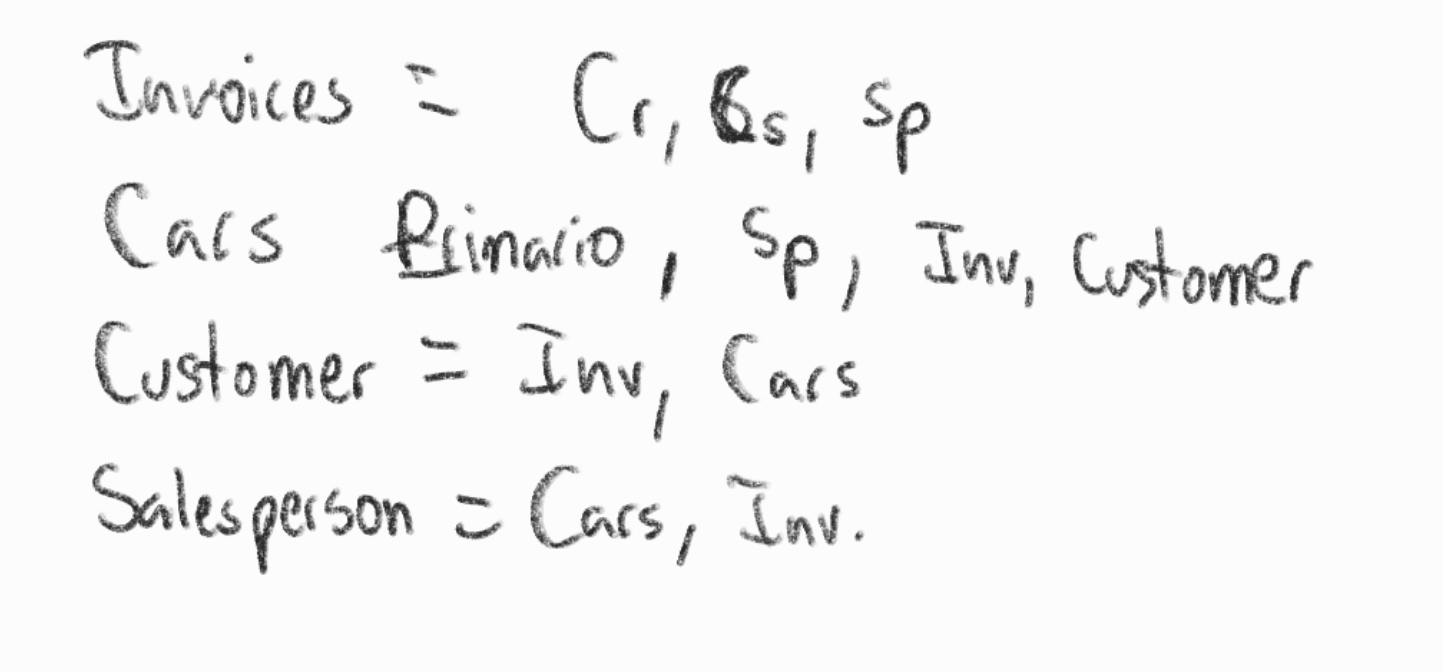 Invoices = Cr, Cs, Sp
Cars Primario, Sp, Inv, Customer
Customer = Inv, Cars
Salesperson = Cars, Inv.